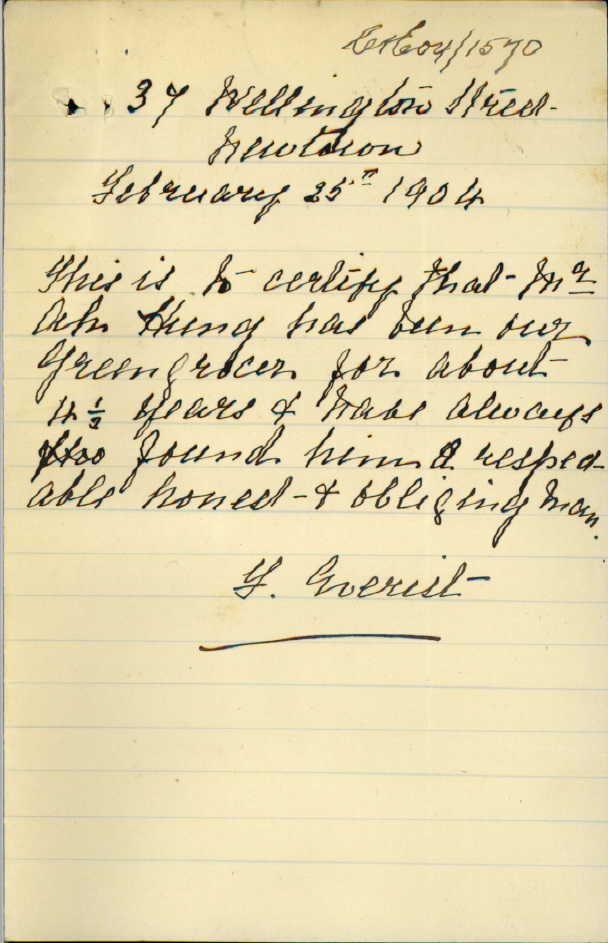 C&E 04/1570
37 Wellington Street
Newtown
February 25th 1904
This is to certify that Mr
Ah Hung has been our
Greengrocer for about
4 1/2 years & have always
found him a respect
able honest & obliging man.
G. Everist